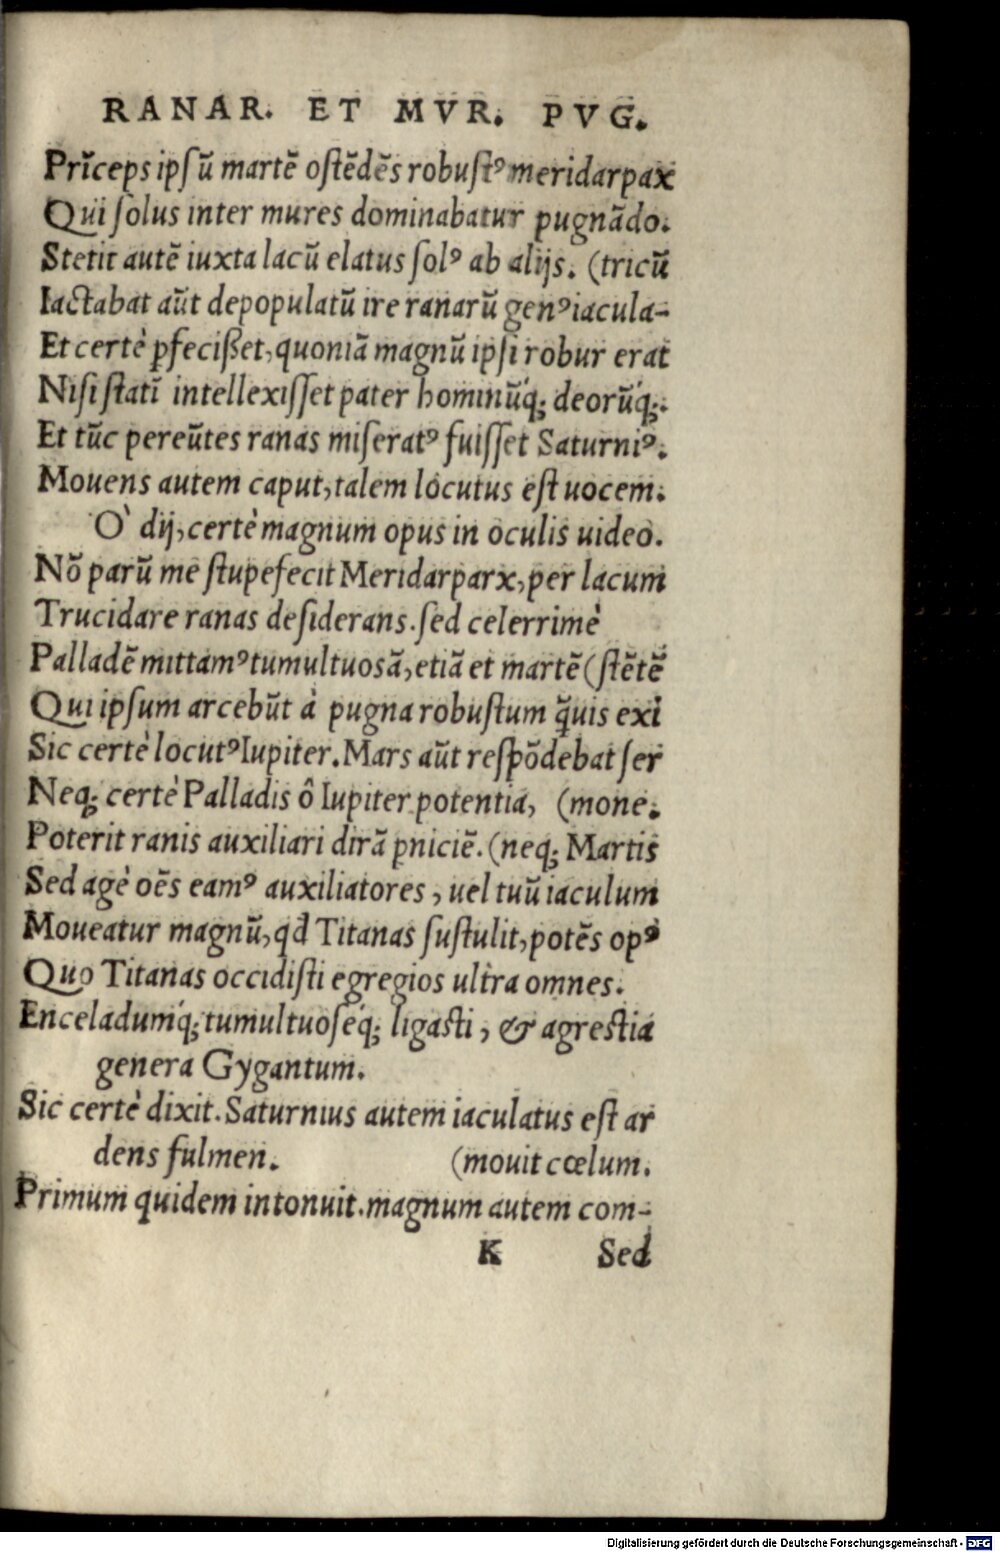 RANAR. ET MVR. PVG.
Prĩceps ipſũ martẽ oſtẽdẽs robuſtꝰ meridarpax
Qui ſolus inter mures dominabatur pugnãdo.
Stetit autẽ iuxta lacũ elatus ſolꝰ ab alijs. (tricũ
Iactabat aũt depopulatũ ire ranarũ genꝰ iacula-
Et certè ꝑfecißet, quoniã magnũ ipſi robur erat
Niſi ſtatĩ intellexiſſet pater hominũq́; deorũq́;.
Et tũc pereũtes ranas miſeratꝰ fuiſſet Saturniꝰ.
Mouens autem caput, talem locutus eſt uocem.
O` dij, certè magnum opus in oculis uideo.
Nõ parũ me ſtupefecit Meridarparx, per lacum
Trucidare ranas deſiderans. ſed celerrimè
Palladẽ mittamꝰ tumultuosã, etiã et martẽ (ſtẽtẽ
Qui ipſum arcebũt à pugna robuſtum q̃uis exi
Sic certè locutꝰ Iupiter. Mars aũt reſpõdebat ſer
Neq; certè Palladis ô Iupiter potentia, (mone.
Poterit ranis auxiliari dirã ꝑniciẽ. (neq; Martis
Sed agè oẽs eamꝰ auxiliatores, uel tuũ iaculum
Moueatur magnũ, qd Titanas ſuſtulit, potẽs opꝰ
Quo Titanas occidiſti egregios ultra omnes.
Enceladumq́; tumultuoſeq́; ligaſti, & agreſtia
genera Gygantum.
Sic certè dixit. Saturnius autem iaculatus eſt ar
dens fulmen. (mouit cœlum.
Primum quidem intonuit. magnum autem com-
K Sed
Digitalisierung gefördert durch die Deutsche Forschungsgemeinschaft - DFG